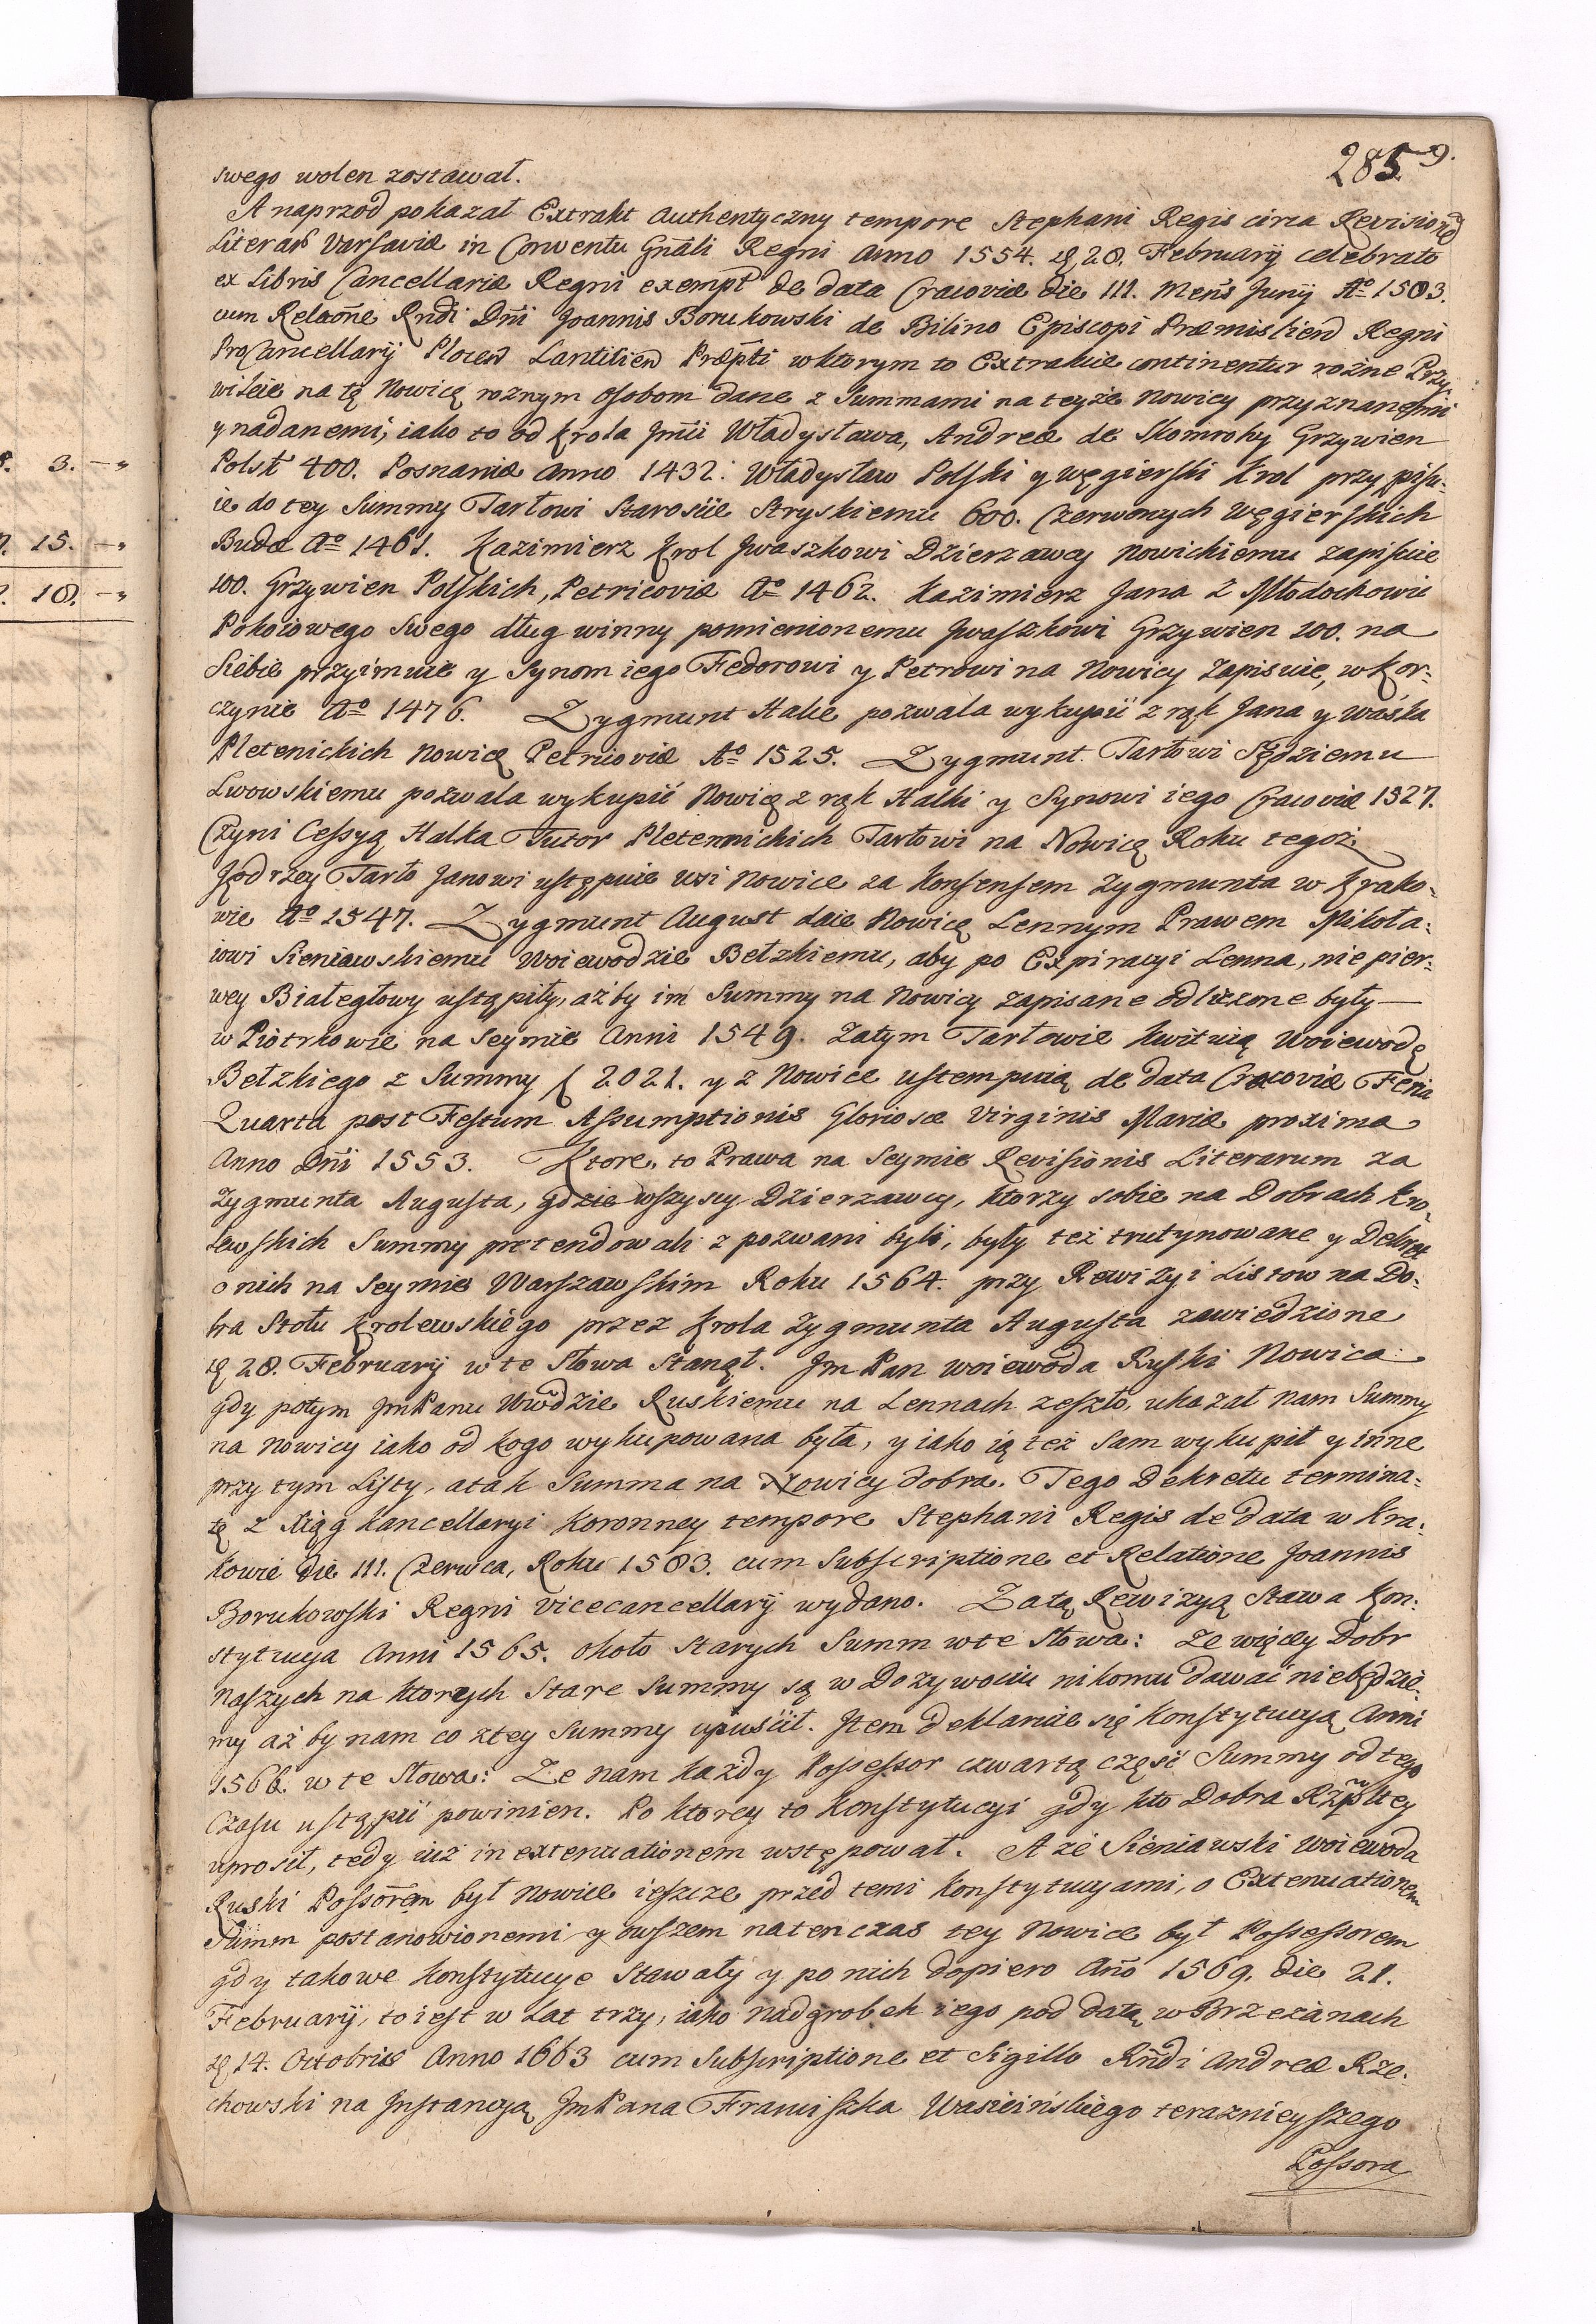 285 9.
swego wolen zostawał.
A naprzod pokazał Extrakt Authentyczny tempore Stephani Regis circa Revisioned
Literard Varsaviæ in Conventu Gnãli Regni Anno 1554. 28. February celebrato
ex Libris Cancellariæ Regni exempt de data Cracoviæ die 111. Meñs Junÿ Aº 1583.
cum Relaõne Rndi Dñi Joannis Borukowski de Bilino Episcopi Præmislien Regni
ProCancellarÿ Plocen Lantilien Præpti w ktorym to Extrakcie continentur rożne Przy-
wileie na tę Nowicę roznym osobom dane z Summami na teyże Nowicy przyznanemi
y nadanemi, iako to od Krola Jmći Władysława, Andreæ de Skomrohy Grzywien
Polst 400. Posnaniæ Anno 1432. Władysław Polski y węgierski Krol przypisu-
ie do tey Summy Tarłowi Starosćie Stryskiemu 600. Czerwonych Węgierskich
Budæ Aº 1461. Kazimierz Krol Jwaszkowi Dzierzawcy Nowickiemu zapisuie
100. Grzywien Polskich, Petricoviæ Aº 1462. Kazimierz Jana z Młodochowic
Pokoiowego Swego dług winny pomienionemu Jwaszkowi Grzywien 100. na
Siebie przyimuie y Synom iego Fedorowi y Petrowi na Nowicy Zapisuie, w Kor-
czynie Aº 1476. Zygmunt Halce pozwala wykupić z rąk Jana y Waśka
Pletenickich Nowicę Petricoviæ Aº 1525. Zygmunt Tarłowi Sędziemu
Lwowskiemu pozwala wykupić Nowicę z rąk Halki y Synowi iego Cracoviæ 1527.
Czyni Cessyą Halka Tutor Pletennickich Tarłowi na Nowicę Roku tegoż.
Jędrzey Tarło Janowi ustępuie wsi Nowice za Konsensem Zygmunta w Krako-
wie Aº 1547. Zygmunt August daie Nowicę Lennym Prawem Mikoła-
iowi Sieniawskiemu Woiewodzie Bełzkiemu, aby po Expiracyi Lenna, nie pier-
wey Białegłowy ustąpiły, aż by im Summy na Nowicy zapisane odliczone były
w Piotrkowie na Seymie Anni 1549. Zatym Tarłowie kwituią Woiewodę
Bełzkiego z Summy f 2021. y z Nowice ustempuią de data Cracoviæ Feria
Quarta post Festum Assumptionis Gloriosæ Virginis Mariæ proxima
Anno Dñi 1553. Ktore to Prawa na Seymie Revisionis Literarum za
Zygmunta Augusta, gdzie wszyscy Dzierzawcy, ktorzy sobie na Dobrach Kro-
lewskich Summy pretendowali z pozwani byli, były też trutynowane y Dekret
o nich na Seymie Warszawskim Roku 1564. przy Rewizyi Listow na Do-
bra Stołu Krolewskiego przez Krola Zygmunta Augusta zawiedzione
28. February w te Słowa Stanął. Jm Pan Woiewoda Ruski Nowica
gdy potym JmPanu Wwdzie Ruskiemu na Lennach zeszło, ukazał nam Summy
na Nowicy iako od kogo wykupowana była, y iako ią też Sam wykupił y inne
przy tym Listy, a tak Summa na Nowicy dobra. Tego Dekretu termina-
tę z Xiąg Kancellaryi Koronney tempore Stephani Regis de data w Kra-
kowie die 111. Czerwca, Roku 1583. cum Subscriptione et Relatione Joannis
Borukowski Regni Vicecancellarÿ wydano. Za tą Rewizyą Stawa Kon-
stytucya Anni 1565. około Starych Summ w te Słowa: Ze więcey Dobr
naszych na ktorych Stare Summy są w Dozywociu nikomu dawać niebędzie-
my aż by nam co z tey Summy upuścił. Item deklaruie się Konstytucyą Anni
1566. w te Słowa: Ze nam każdy Possessor czwartą część Summy od tego
Czasu ustąpić powinien. Po ktorey to Konstytucyi gdy kto Dobra Rzpltey
uprosił, tedy iuż in extenuationem wstępował. A że Sieniawski Woiewoda
Ruski Possorem był Nowice ieszcze przed temi Konstytucyami, o Extenuationem
Summ postanowionemi y owszem natenczas tey Nowice był Possessorem
gdy takowe Konstytucye Stawały y po nich dopiero Año 1569. die 21.
February, to iest w Lat trzy, iako nadgrobek iego pod datą w Brzeżanach
14. Octobris Anno 1663 cum Subscriptione et Sigillo Rñdi Andreæ Rze-
chowski na Jnstancyą JmPana Franciszka Wasicińskiego teraznieyszego
Possora
3.
15.
18.